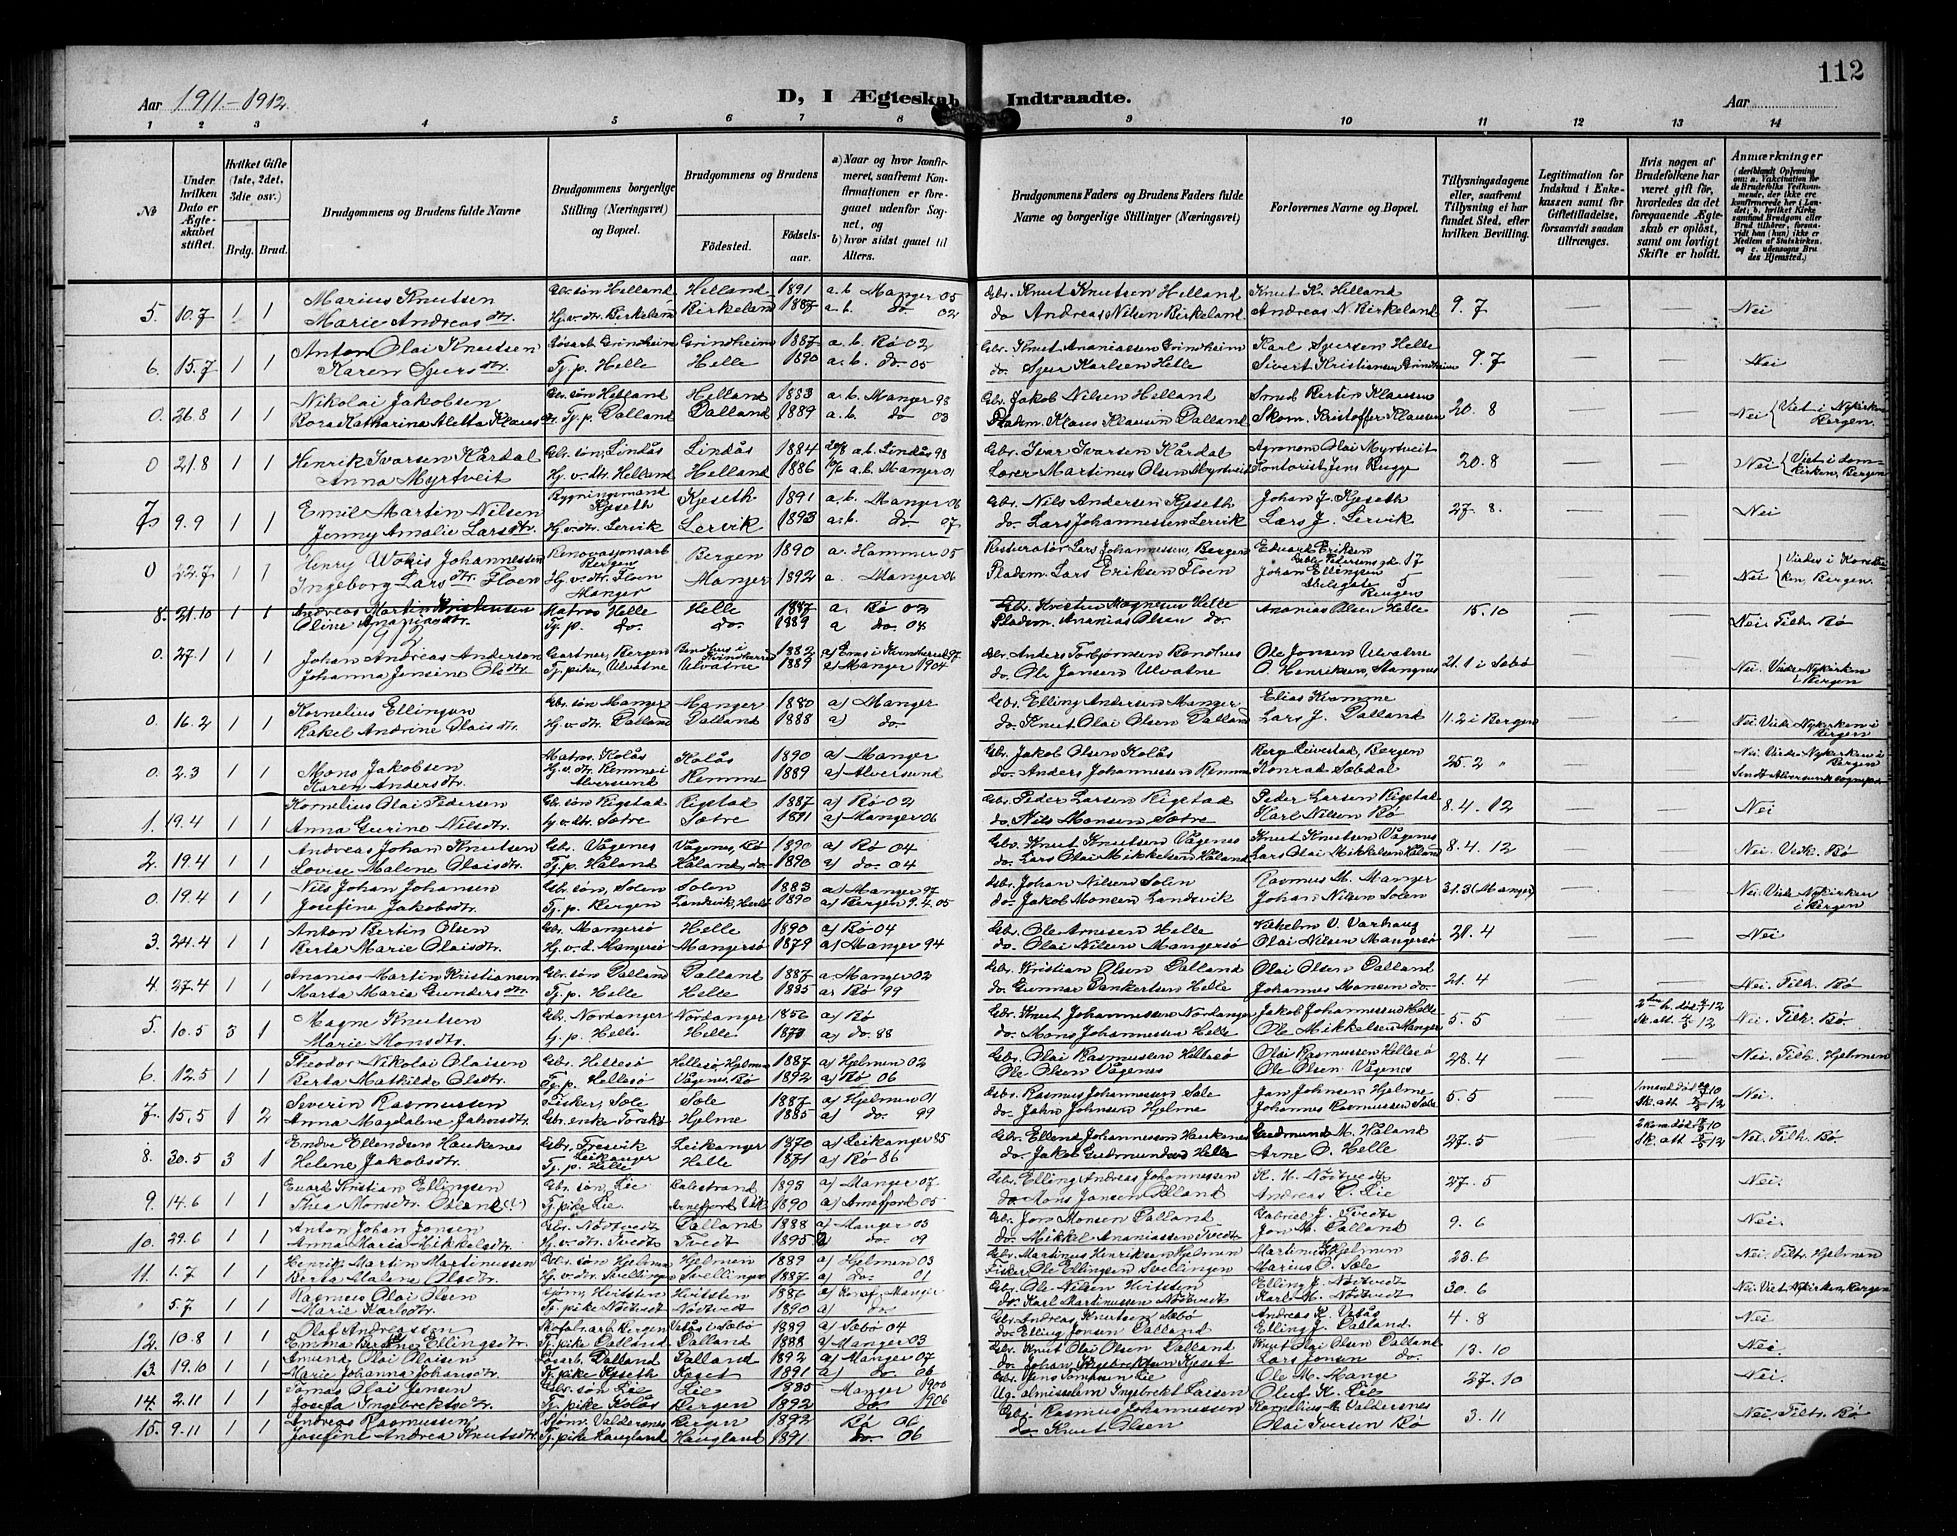 112
Aar 1911.-1912.
D, I Ægteskab Indtraadte.
Aar
1 2 3 4 5 6 7 8 9 10 11 12 13 14
No
Under hvilken Dato er Ægteskabet stiftet.
Hvilket Gifte (1ste, 2det, 3die osv.)
Brdg. Brud.
Brudgommens og Brudens fulde Navne
Brudgommens borgerlige Stilling (Næringsvei) og Bopæl.
Brudgommens og Brudens
Födested.
Födselsaar.
a) Naar og hvor konfirmeret, saafremt Konfirmationen er foregaaet udenfor Sognet, og
b) hvor sidst gaaet til Alters.
Brudgommens Faders og Brudens Faders fulde Navne og borgerlige Stillinger (Næringsvei)
Forlovernes Navne og Bopæl.
Tillysningsdagene eller, saafremt Tillysning ei har fundet Sted, efter hvilken Bevilling.
Legitimation for Indskud i Enkekassen samt for Giftetilladelse, forsaavidt saadan tiltrænges.
Hvis nogen af Brudefolkene har været gift för, hvorledes da det foregaaende Ægteskab er oplöst, samt om lovligt Skifte er holdt.
Anmærkninger
5. 10.7 1 1 Marius Knutsen Gbr. søn Helland Helland 1891 a.b Manger 05 Gbr. Knut Knutsen Helland Knut K. Helland 9.7 — — Nei
Marie Andreasdtr. Hj.v.dtr. Birkeland Birkeland 1887 a.b. do 02 do Andreas Nilsen Birkeland Andreas N. Birkeland
6. 15.7 1 1 Anton Olai Knutsen Grindheim Grindheim 1887 a.b. Bø 02 Gbr. Knut Ananiassen Grindheim Karl Sjursen Helle 9.7 — — Nei
Karen Sjursdtr. Tj.p. Helle Helle 1890 a.b. do. 05 do. Sjur Karlsen Helle Sivert Kristiansen Grindheim
0. 26.8 1 1 Nikolai Jakobsen Gbr. søn Helland Helland 1883 a.b. Manger 98 Gbr. Jakob Nilsen Helland Smed Bertin Klausen 20.8 — — Nei Viet i Nykirken Bergen.
Bora Katharina Aletta Klausdtr. Tj.p. Dalland Dalland 1889 a.b do 03 Pladsm. Klaus Klausen Dalland Skom. Kristoffer Klausen
0 21.8 1 1 Henrik Ivarsen Kårdal Gbr. søn, Lindås Lindås 1884 a.b. Lindås 98 Gbr. Ivar Ivarsen Kårdal Agronom Olai Myrtveit 20.8 — — Nei Viet i domkirken, Bergen
Anna Myrtveit Hj.v.dtr. Helland Helland 1886 a.b. Manger 01 Lærer Martinus Olsen Myrtveit Kontorist Jens Bugge
7 9.9 1 1 Emil Martin Nilsen Bygningsmand Kjeseth Kjeseth 1891 a.b. Manger 06 Gbr. Nils Andersen Kjeseth Johan J. Kjeseth 27.8. — — Nei
Jenny Amalie Larsdtr. Hj.v.dtr. Lervik Lervik 1893 a.b. do 07 do. Lars Johannessen Lervik Lars J. Lervik
0 22.7 1 1 Henry Johannessen Renovasjonsarb Bergen Bergen 1890 a. Hammer 05 Restauratør Lars Johannessen, Bergen Edvard Eriksen 17 — — Nei Bergen.
Ingeborg Larsdtr. Floen Hj.v.dtr. Floen Manger Manger 1892 a. Manger 06 Pladsm. Lars Eriksen Floen Johan Ellingsen 5 Bergen
8. 21.10 1 1 Andreas Martin Kristensen Matros Helle Helle 1887 a. Bø 02 Gbr. Kristen Magnesen Helle Ananias Olsen Helle 15.10 — — Nei Tilh. Bø
Oline Ananiasdtr. Tj.p. do. do. 1889 a do. 04 Pladsm. Ananias Olsen do.
1912
0. 27.1 1 1 Johan Andreas Andersen Gartner, Bergen 1882 Gbr. Anders Torbjørnsen Ole Jonsen Ulvatne 21.1 i Sæbø — — Nei. Viede Nykirken i Bergen
Johanna Jensine Olsdtr. Tj. pike, Ulvatne Ulvatne 1889 a) Manger 1904 do. Ole Jonsen Ulvatne O. Henriksen, Mangnes
0. 16.2 1 1 Kornelius Ellingsen Gbr. søn Manger Manger 1880 a) Manger Gbr. Elling Andersen Manger Elias Kromme 11.2 i Bergen — — Nei. Viede Nykirken i Bergen
Rakel Andrine Olaisdtr. Hj.v.dtr. Dalland Dalland 1888 a) do do. Knut Olai Olsen Dalland Lars J. Dalland
0. 2.3 1 1 Mons Jakobsen Matros Kolås Kolås 1890 a) Manger Gbr. Jakob Olsen Kolås Berge Leivestad, Bergen 25.2 — — Nei. Viede Nykirken i Bergen
Karen Andersdtr. Hj.v.dtr. Remme i Alversund Remme 1889 a) Alversund do. Anders Johannessen Remme Konrad Sæbdal
1. 19.4 1 1 Kornelius Olai Pedersen Gbr. søn Rigstad Rigstad 1887 a) Bø 02 Gbr. Peder Larsen Rigstad Peder Larsen Rigstad 8.4.12 — — Nei
Anna Gurine Nilsdtr. Hj.v.dtr. Sætre Sætre 1891 a) Manger 06 do. Nils Monsen Sætre Karl Nilsen Bø
2. 19.4 1 1 Andreas Johan Knutsen Gbr. Vågenes Vågenes, Bø 1890 a) Bø 04 Gbr. Knut Knutsen Vågenes Knut Knutsen Vågenes 8.4.12 — — Nei. Bø
Lovise Malene Olaisdtr. Tj.p. Håland Håland, do. 1890 a) do. 04 do. Lars Olai Mikkelsen Håland Lars Olai Mikkelsen Håland
0. 19.4 1 1 Nils Johan Johansen Gbr. søn, Solen Solen 1883 a) Manger 97 Gbr. Johan Nilsen Solen Rasmus M. Manger 31.3 (Manger) — — Nei. Viede Nykirken i Bergen
Josefine Jakobsdtr. Tj.p. Bergen Landsvik, Herlø 1890 a) Bergen 9.4.05 do. Jakob Monsen Landsvik Johan Nilsen Solen
3. 24.4 1 1 Anton Bertin Olsen Gbr. Mangersø Helle 1890 a) Bø 04 Gbr. Ole Arnesen Helle Vilhelm V. Varhaug 21.4 — — Nei
Berta Marie Olaisdtr. Hj.v.d. Mangersø Mangersø 1879 a) Manger 94 do. Olai Nilsen Mangersø Olai Nilsen Mangersø
4. 27.4 1 1 Ananias Martin Kristiansen Gbr. søn Dalland Dalland 1887 a) Manger 02 Gbr. Kristian Olsen Dalland Olai Olsen Dalland 21.4 — — Nei. Tilh. Bø
Marta Marie Gundersdtr. Tj.p. Helle Helle 1885 a) Bø 99 do. Gunnar Dankertsen Helle Johannes Monsen do.
5. 10.5 3 1 Magne Knutsen Gbr. Nordanger Nordanger 1856 a) Bø Gbr. Knut Johannessen Nordanger Jakob Johannessen Helle 5.5 — Nei. Tilh. Bø.
Marie Monsdtr. Helle Helle a) do. 88 do. Mons Johannessen Helle Ole Mikkelsen Manger
6. 12.5 1 1 Theodor Nikolai Olaisen Gbr. Hellesø Hellesø, Hjelmen 1887 a) Hjelmen 02 Gbr. Olai Rasmussen Hellesø Olai Rasmussen Hellesø 28.4 — — Nei. Tilh. Hjelmen
Berta Mathilde Olsdtr. Tj.p. Hellesø Vågenes, Bø 1892 a) Bø 06 Ole Olsen Vågenes Ole Olsen Vågenes
7. 15.5 1 2 Severin Rasmussen Fisker, Sæle Sæle 1887 a) Hjelmen 01 Gbr. Rasmus Johannessen Sæle Jan Johnsen Hjelme 5.5 — Nei.
Anna Magdalene Jahnsdtr. Gbr. enke Hjelme 1885 a) do. 99 do. Jahn Johnsen Hjelme Johannes Rasmussen Sæle
8. 30.5 3 1 Endre Ellendsen Haukenes Gbr. Leikanger Leikanger 1870 a) Leikanger 85 Gbr. Ellend Johannessen Haukenes Gudmund M. Håland 27.5 — Nei. Tilh. Bø
Helene Jakobsdtr. Tj.p. Helle Helle 1871 a) Bø 86 do. Jakob Gudmundsen Helle Arne O. Helle
9. 14.6 1 1 Edvard Kristian Ellingsen Gbr. søn, Lie Balestrand 1893 a) Manger 07 Gbr. Elling Andreas Johannessen K. H. Nötvedt 27.5 — — Nei.
Thea Monsdtr. Öeland (?) Tj. pike Lie 1890 a) Arnefjord 05 do. Mons Jansen Andreas O. Lie
10. 29.6 1 1 Anton Johan Jonsen Gbr. Nötvedt Dalland 1888 a) Manger 03 Gbr. Jon Monsen Dalland Gabriel J. Tvedt 9.6 — — Nei.
Anna Maria Mikkelsdtr. Hj.v.dtr. Tvedt Tvedt 1895 a) do. 09 do. Mikkel Ananiassen Tvedt Jon M. Dalland
11. 1.7 1 1 Henrik Martin Martinussen Gbr. søn Hjelmen Hjelmen 1889 a) Hjelmen 03 Gbr. Martinus Henriksen Hjelmen Martin Hjelmen 23.6 — — Nei. Tilh. Hjelmen
Berta Malene Olsdtr. Hj.v.dtr. Svellingen Svellingen 1887 a) do. 01 Fisker Ole Ellingsen Svellingen Marius O. Sæle
" 5.7 1 1 Rasmus Olai Olsen Hvitsten Hvitsten 1886 a) Konf. Manger Gbr. Ole Nilsen Hvitsten Elling J. Nötvedt 30.6 — — Nei. Viet Nykirken Bergen
Marie Karlsdtr. Tj. pike Nötvedt Nötvedt 1890 a) do do. Karl Martinussen Nötvedt Karl M. Nötvedt
12. 10.8 1 1 Olaf Andreassen Bergen Vetås i Sæbø 1889 a) Sæbø 04 Gbr. Andreas Knutsen Sæbø Andreas K. Vetås 4.8 — — Nei
Emma Ellingsdtr. Tj. pike Dalland Dalland 1888 a) Manger 03 do. Elling Jonsen Dalland Elling J. Dalland
13. 19.10 1 1 Amund Olai Olaisen Dalland Dalland 1892 a) Manger 07 Gbr. Knut Olai Olsen Dalland Knut Olai Olsen Dalland 13.10 — — Nei.
Marie Johanna Johansdtr. Tj. pike Kjeseth Kjeset 1891 a) do. 06 do. Johan Ingebrektsen Kjeset Lars Jonsen do.
14. 2.11 1 1 Tomas Olai Jensen Gbr. søn Lie Lie 1885 Manger 1900 Gbr. Jens Tomassen Lie Ole M. Mange 27.10 — — Nei.
Josefa Ingebrektsdtr. Tj. pike Kolås Bergen 1892 do. 1906 Ug. Ingebrekt Larsen Oluf K. Lie
15. 9.11 1 1 Andreas Rasmussen Valdersnes Bergen 1892 Bø 06 Gbr. Rasmus Johannessen Kornelius M. Valdersnes 3.11 — — Nei. Tilh. Bø
Josefine Andrea Knutsdtr. Tj. pike Haugland Haugland 1891. do. 06 do. Knut Olsen Olai Iversen Bø